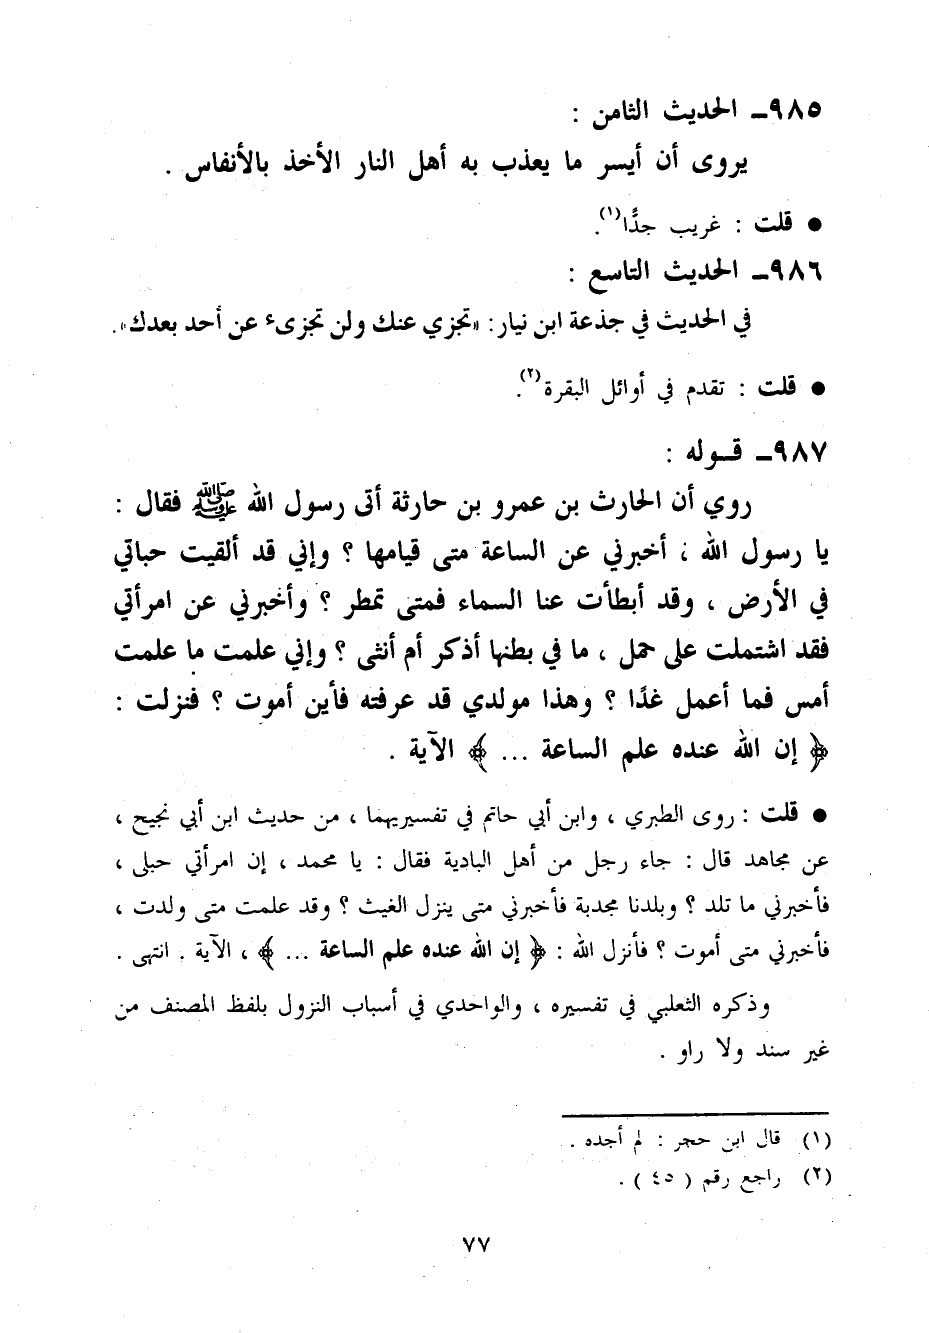 ٩٨٥ـ الحديث الثامن :
يروى أن أيسر ما يعذب به أهل النار الأخذ بالأنفاس .
● قلت : غريب جدًّا(١).
٩٨٦ـ الحديث التاسع :
في الحديث في جذعة ابن نيار: «تجزي عنك ولن تجزىء عن أحد بعدك».
● قلت : تقدم في أوائل البقرة(٢).
٩٨٧ـ قـوله :
روي أن الحارث بن عمرو بن حارثة أتى رسول الله ﷺ فقال :
يا رسول الله ؛ أخبرني عن الساعة متى قيامها ؟ وإني قد ألقيت حباتي
في الأرض ، وقد أبطأت عنا السماء فمتى تمطر ؟ وأخبرني عن امرأتي
فقد اشتملت على حمل ، ما في بطنها أذكر أم أنثى ؟ وإني علمت ما علمت
أمس فما أعمل غدًا ؟ وهذا مولدي قد عرفته فأين أموت ؟ فنزلت :
﴿ إن الله عنده علم الساعة ... ﴾ الآية .
● قلت : روى الطبري ، وابن أبي حاتم في تفسيريهما ، من حديث ابن أبي نجيح ،
عن مجاهد قال : جاء رجل من أهل البادية فقال : يا محمد ، إن امرأتي حبلى ،
فأخبرني ما تلد ؟ وبلدنا مجدبة فأخبرني متى ينزل الغيث ؟ وقد علمت متى ولدت ،
فأخبرني متى أموت ؟ فأنزل الله : ﴿ إن الله عنده علم الساعة ... ﴾ ، الآية . انتهى .
وذكره الثعلبي في تفسيره ، والواحدي في أسباب النزول بلفظ المصنف من
غير سند ولا راو .
(١) قال ابن حجر : لم أجده .
(٢) راجع رقم ( ٤٥ ) .
٧٧